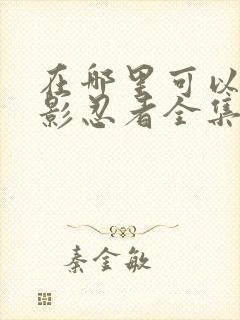 在哪里可以
影忍者全集
秦金敏